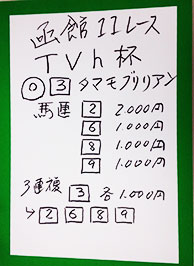 函館11レース
TVh杯
◎ 3 タマモブリリアン
馬連 2 2.000円
6 1.000円
8 1.000円
9 1.000円
3連複 3 各1.000円
↳ 2 6 8 9